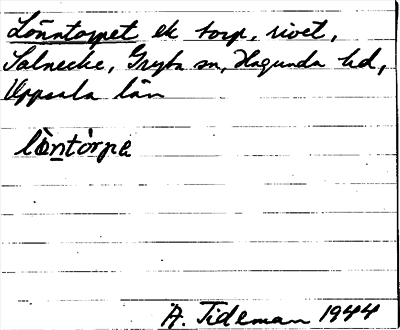 Lönntorpet ek torp, rivet,
Salnecke, Gryta sn, Hagunda hd,
Uppsala län
lò̀ntòrpe
A. Tideman 1944